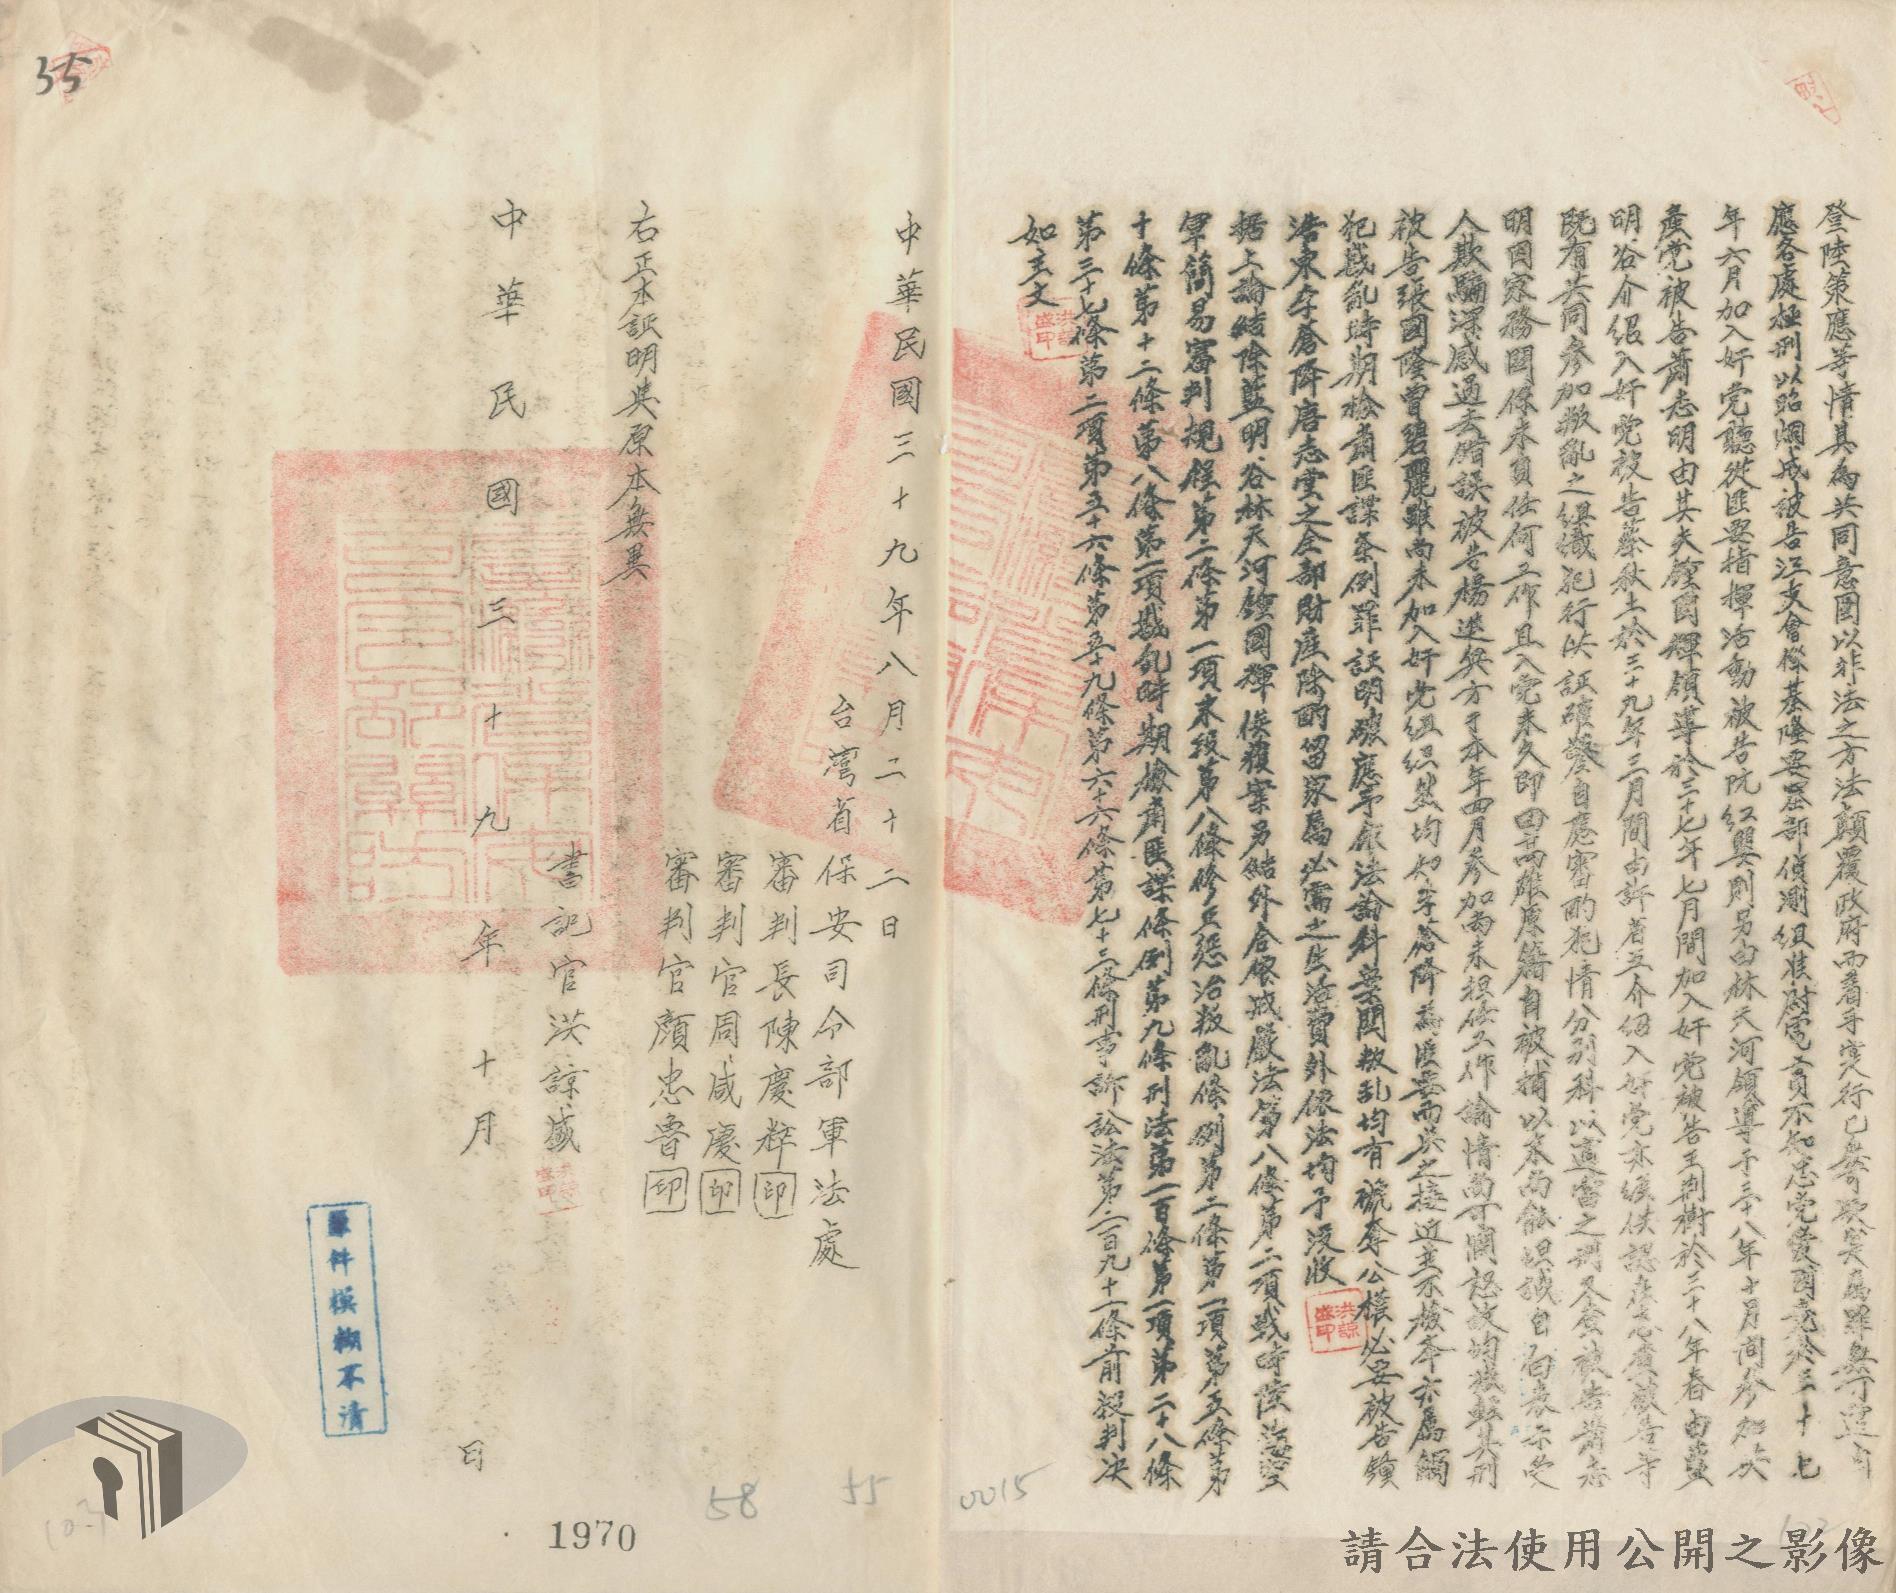 登陸策應等情其為共同意圖以非法之方法顛覆政府而着手實行已無可
應各處極刑以昭烱戒被告江支會係基隆要塞部偵測組准尉電務員不知忠党愛國竟於三十七
年六月加入奸党聽從匪要指揮活動被告阮紅嬰則另由林天河領導于三十八年十月間參加共
產党被告蕭志明由其夫鍾國輝領導於三十七年七月間加入奸党被告王荆樹於三十八年春由藍
明谷介紹入奸党被告蔡秋土於三十九年三月間由許省五介紹入奸党亦經供認在卷該被告等
既有共同參加叛亂之組織犯行供証確鑿自應審酌犯情分別科以適當之刑又查被告蕭志
明因家務關係未負任何工作且入党未久即回高雄原籍自被捕以來尚能坦誠自白表示受
人欺騙深感過去錯誤被告楊進興方于本年四月參加尚未担任工作論情尚可憫恕故均減輕其刑
被告張國隆曾碧麗雖尚未加入奸党組織然均知李蒼降為匪要而與之接近並不檢舉亦屬觸
犯戡亂時期檢肅匪諜条例罪証明確應予依法論科棄関叛乱均有褫奪公權必要被告鍾
浩東李蒼降唐志堂之全部財産除酌留家屬必需之生活費外依法均予没收
據上論結除藍明谷林天河鍾國輝俟獲案另結外合依戒嚴法第八條第二項戰時陸海空
軍簡易審判規程第二條第一項末段第八條修正懲治叛亂條例第二條第一項第五條第
十條第十二條第八條第一項戡亂時期檢肅匪諜條例第九條刑法第一百條第一項第二十八條
第三十七條第二項第五十六條第五十九條第六十六條第七十三條刑事訴訟法第二百九十一條前段判决
如主文
洪諒盛印
洪諒盛印
中華民國三十九年八月二十二日
台灣省保安司令部軍法處
審判長陳慶粹印
審判官周咸慶印
審判官顏忠魯印
右正本証明與原本無異
書記官洪諒盛
洪諒盛印
中華民國三十九年十月 日
原件模糊不清
35
0015
55
58
1970
請合法使用公開之影像